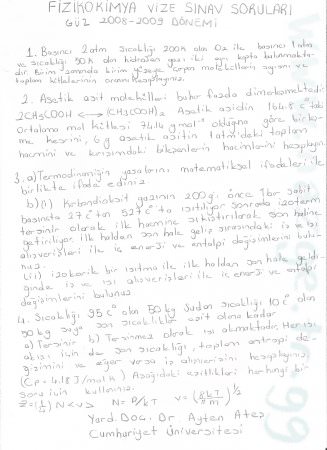 FİZİKOKİMYA VİZE SINAV SORULARI
GÜZ 2008-2009 DÖNEMİ
1. Basıncı 2 atm sıcaklığı 200K olan O2 ile basıncı 1 atm
ve sıcaklığı 50K olan hidrojen gazı iki ayrı kapta bulunmakta-
dır. Birim zamanda birim yüzeye çarpan moleküllerin sayısını ve
toplam kütlelerinin oranını hesaplayınız.
2. Asetik asit molekülleri buhar fazda dimerleşmektedir.
2CH3COOH ⟷ (CH3COOH)2 Asetik asidin 164.8 c°taki
ortalama mol kütlesi 74.14 g mol⁻¹ olduğuna göre birleş-
me kesrini, 6 g asetik asitin 1 atm'deki toplam
hacmini ve karışımdaki bileşenlerin hacimlerini hesaplayın.
3. a) Termodinamiğin yasalarını matematiksel ifadeleri ile
birlikte ifade ediniz
b) (i) Karbondioksit gazının 200 g'ı önce 1 bar sabit
basınçta 27 c°tan 527 c°ta ısıtılıyor sonrada izoterm
tersinir olarak ilk hacmine sıkıştırılarak son haline
getiriliyor. ilk haldan son hale geliş sırasındaki iş ve ısı
alışverişleri ile iç enerji ve entalpi değişimlerini bulu-
nuz.
(ii) izokorik bir ısıtma ile ilk haldan son hale geldi-
ğinde iş ve ısı alışverişleri ile iç enerji ve entalpi
değişimlerini bulunuz
4. Sıcaklığı 95 c° olan 50 kg sudan sıcaklığı 10 c° olan
50 kg suya son sıcaklıklar eşit olana kadar
a) Tersinir b) Tersinmez olarak ısı akmaktadır. Her iki
akış için de son sıcaklığı, toplam entropi de-
ğişimini ve eğer varsa iş alışverişini hesaplayınız.
(Cp = 4.18 J/mol K) Aşağıdaki eşitlikleri herhangi bir
soru için kullanınız.
Z=(1/4) N<v> N= P/kT v= (8kT/πm)^1/2
Yard. Doç. Dr Ayten Ateş
Cumhuriyet Üniversitesi